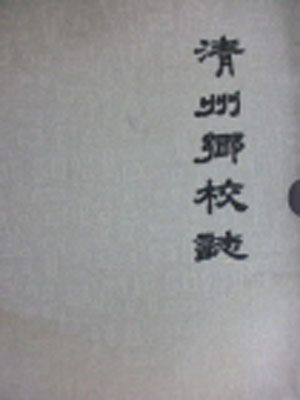 清州鄕校誌